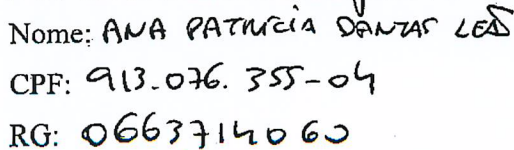 Nome: ANA PATRICIA DANTAS LEÃO
CPF: 913.076.355-04
RG: 0663714060